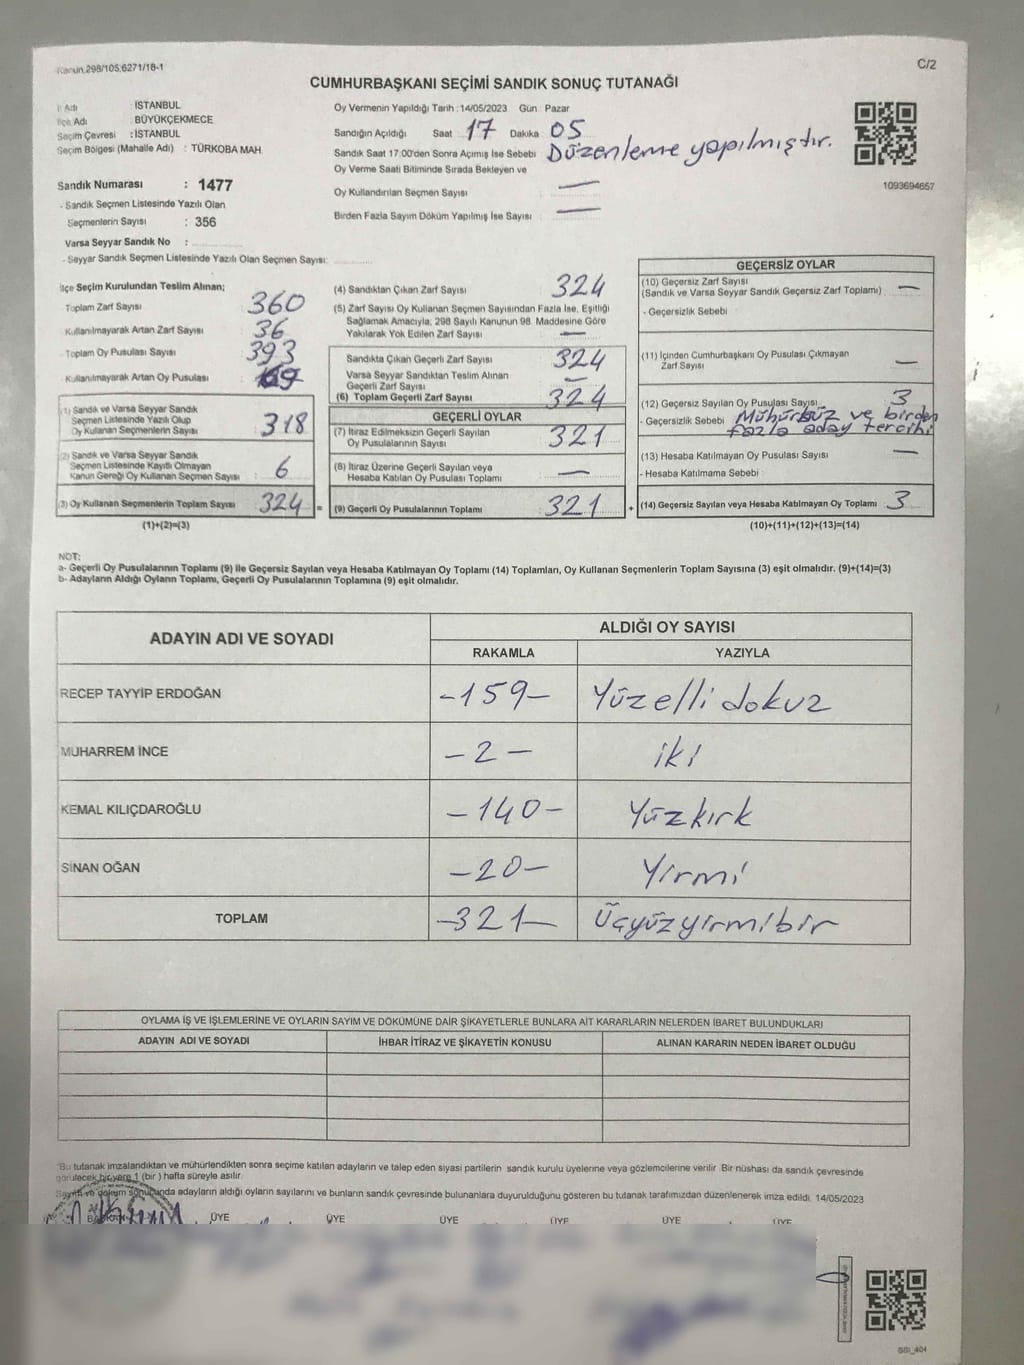 Kanun 298/105,6271/18-1
C/2
CUMHURBAŞKANI SEÇİMİ SANDIK SONUÇ TUTANAĞI
İl Adı : İSTANBUL
İlçe Adı : BÜYÜKÇEKMECE
Seçim Çevresi : İSTANBUL
Seçim Bölgesi (Mahalle Adı) : TÜRKOBA MAH.
Sandık Numarası : 1477
- Sandık Seçmen Listesinde Yazılı Olan
Seçmenlerin Sayısı : 356
Varsa Seyyar Sandık No :
- Seyyar Sandık Seçmen Listesinde Yazılı Olan Seçmen Sayısı:
Oy Vermenin Yapıldığı Tarih : 14/05/2023 Gün : Pazar
Sandığın Açıldığı Saat 17 Dakika 05
Sandık Saat 17:00'den Sonra Açımış İse Sebebi Düzenleme yapılmıştır.
Oy Verme Saati Bitiminde Sırada Bekleyen ve
Oy Kullandırılan Seçmen Sayısı —
Birden Fazla Sayım Döküm Yapılmış İse Sayısı —
1093694657
İlçe Seçim Kurulundan Teslim Alınan;
Toplam Zarf Sayısı 360
Kullanılmayarak Artan Zarf Sayısı 36
Toplam Oy Pusulası Sayısı 393
Kullanılmayarak Artan Oy Pusulası 69
(1) Sandık ve Varsa Seyyar Sandık
Seçmen Listesinde Yazılı Olup
Oy Kullanan Seçmenlerin Sayısı 318
(2) Sandık ve Varsa Seyyar Sandık
Seçmen Listesinde Kayıtlı Olmayan
Kanun Gereği Oy Kullanan Seçmen Sayısı 6
(3) Oy Kullanan Seçmenlerin Toplam Sayısı 324 =
(1)+(2)=(3)
(4) Sandıktan Çıkan Zarf Sayısı 324
(5) Zarf Sayısı Oy Kullanan Seçmen Sayısından Fazla İse, Eşitliği
Sağlamak Amacıyla; 298 Sayılı Kanunun 98. Maddesine Göre
Yakılarak Yok Edilen Zarf Sayısı —
Sandıkta Çıkan Geçerli Zarf Sayısı 324
Varsa Seyyar Sandıktan Teslim Alınan
Geçerli Zarf Sayısı —
(6) Toplam Geçerli Zarf Sayısı 324
GEÇERLİ OYLAR
(7) İtiraz Edilmeksizin Geçerli Sayılan
Oy Pusulalarının Sayısı 321
(8) İtiraz Üzerine Geçerli Sayılan veya
Hesaba Katılan Oy Pusulası Toplamı —
(9) Geçerli Oy Pusulalarının Toplamı 321 +
GEÇERSİZ OYLAR
(10) Geçersiz Zarf Sayısı
(Sandık ve Varsa Seyyar Sandık Geçersiz Zarf Toplamı) —
- Geçersizlik Sebebi
(11) İçinden Cumhurbaşkanı Oy Pusulası Çıkmayan
Zarf Sayısı —
(12) Geçersiz Sayılan Oy Pusulası Sayısı 3
- Geçersizlik Sebebi Mühürsüz ve birden
fazla aday tercihi
(13) Hesaba Katılmayan Oy Pusulası Sayısı —
- Hesaba Katılmama Sebebi
(14) Geçersiz Sayılan veya Hesaba Katılmayan Oy Toplamı 3
(10)+(11)+(12)+(13)=(14)
NOT:
a- Geçerli Oy Pusulalarının Toplamı (9) ile Geçersiz Sayılan veya Hesaba Katılmayan Oy Toplamı (14) Toplamları, Oy Kullanan Seçmenlerin Toplam Sayısına (3) eşit olmalıdır. (9)+(14)=(3)
b- Adayların Aldığı Oyların Toplamı, Geçerli Oy Pusulalarının Toplamına (9) eşit olmalıdır.
ADAYIN ADI VE SOYADI
ALDIĞI OY SAYISI
RAKAMLA YAZIYLA
RECEP TAYYİP ERDOĞAN -159- Yüzelli dokuz
MUHARREM İNCE -2- iki
KEMAL KILIÇDAROĞLU -140- Yüzkırk
SİNAN OĞAN -20- Yirmi
TOPLAM -321- Üçyüzyirmibir
OYLAMA İŞ VE İŞLEMLERİNE VE OYLARIN SAYIM VE DÖKÜMÜNE DAİR ŞİKAYETLERLE BUNLARA AİT KARARLARIN NELERDEN İBARET BULUNDUKLARI
ADAYIN ADI VE SOYADI İHBAR İTİRAZ VE ŞİKAYETİN KONUSU ALINAN KARARIN NEDEN İBARET OLDUĞU
*Bu tutanak imzalandıktan ve mühürlendikten sonra seçime katılan adayların ve talep eden siyasi partilerin sandık kurulu üyelerine veya gözlemcilerine verilir. Bir nüshası da sandık çevresinde
görülecek bir yere 1 (bir ) hafta süreyle asılır.
Sayım ve döküm sonucunda adayların aldığı oyların sayılarını ve bunların sandık çevresinde bulunanlara duyurulduğunu gösteren bu tutanak tarafımızdan düzenlenerek imza edildi. 14/05/2023
BAŞKAN ÜYE ÜYE ÜYE ÜYE ÜYE ÜYE